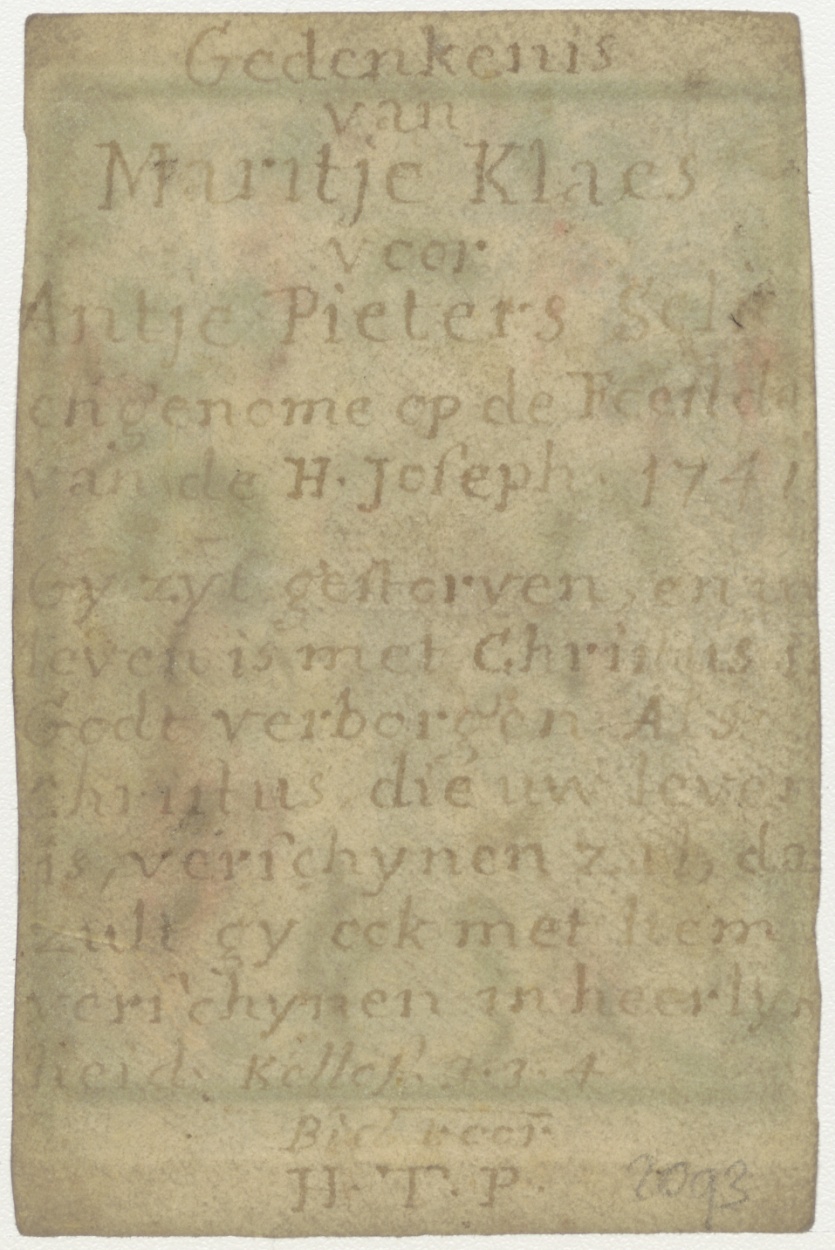 Gedenkenis
van
Maritje Klaes
voor
Antje Pieters
en genome op de Feest da
van de H. Joſeph. 1741
Gy zyt geſtorven, en
leven is met Chriſtus
Godt verborgen. Als
Chriſtus, die uw leven
is, verſchynen zal, da
zult gy ook met hem
verſchynen in heerlyk
heid. Kolloſ. 3. 3. 4
Bid voor
H. T. P.
2093